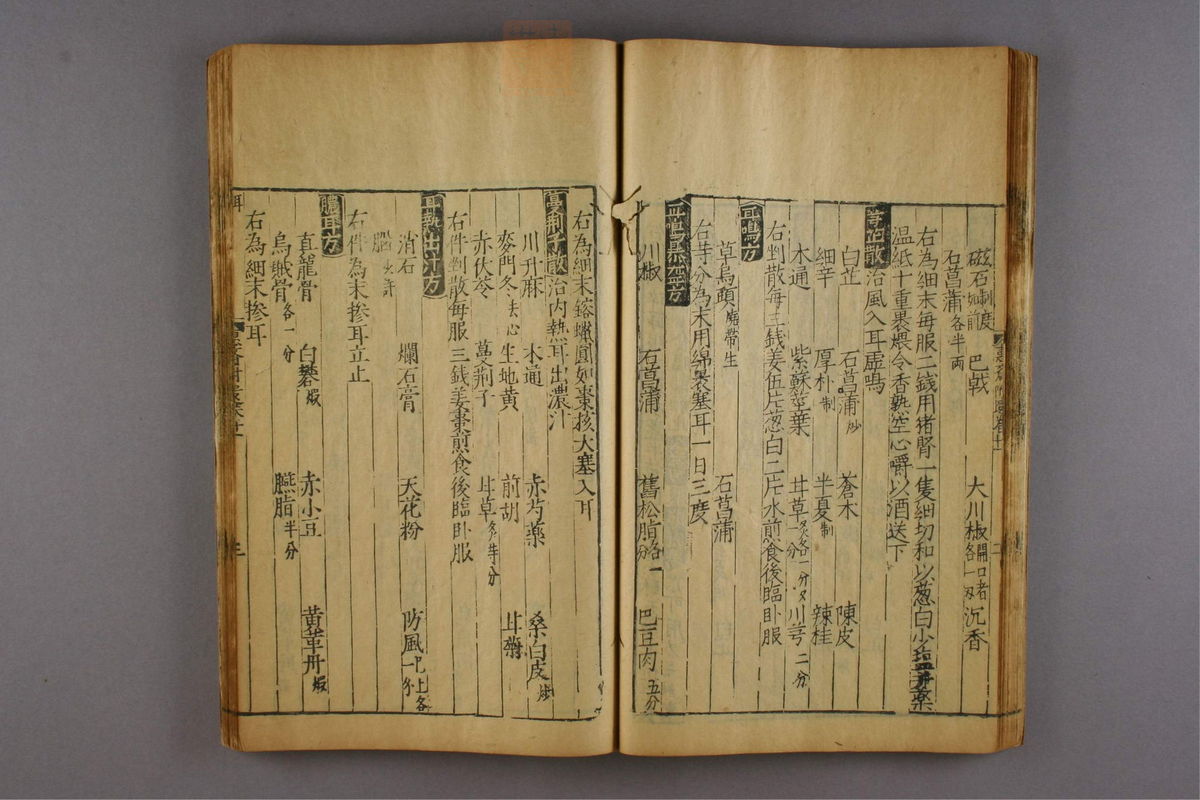 磁石制度如前 巴戟 大川椒開口者各一刄 沉香
石菖蒲各半兩
右為細末每服二錢用猪腎一隻細切和以葱白少塩并藥
温紙十重裹煨令香熟空心嚼以酒送下
芎芷散治風入耳虛鳴
白芷 石菖蒲炒 蒼木 陳皮
細辛 厚朴制 半夏制 辣桂
木通 紫蘇莖葉 甘草炙各一分 川芎二分
右剉散每三錢姜伍片葱白二片水煎食後臨卧服
耳鳴方
草烏頭燒帶生 石菖蒲
右等分為末用綿裹塞耳一日三度
耳鳴暴聾方
川椒 石菖蒲 舊松脂各一分 巴豆肉五分
右為細末鎔蠟圓如棗核大塞入耳
蔓荊子散治内熱耳出濃汁
川升麻 木通 赤芍藥 桑白皮炒
麥門冬去心 生地黄 前胡 甘菊
赤伏苓 蔓荆子 甘草炙等分
右件剉散每服三錢姜棗煎食後臨卧服
耳熱出汁方
消石 爛石膏 天花粉 防風已上各一分
腦少許
右件為末摻耳立止
膿耳方
真龍骨 白礬煅 赤小豆 黄䓀丹煅
烏賊骨各一分 臙脂半分
右為細末摻耳
耳